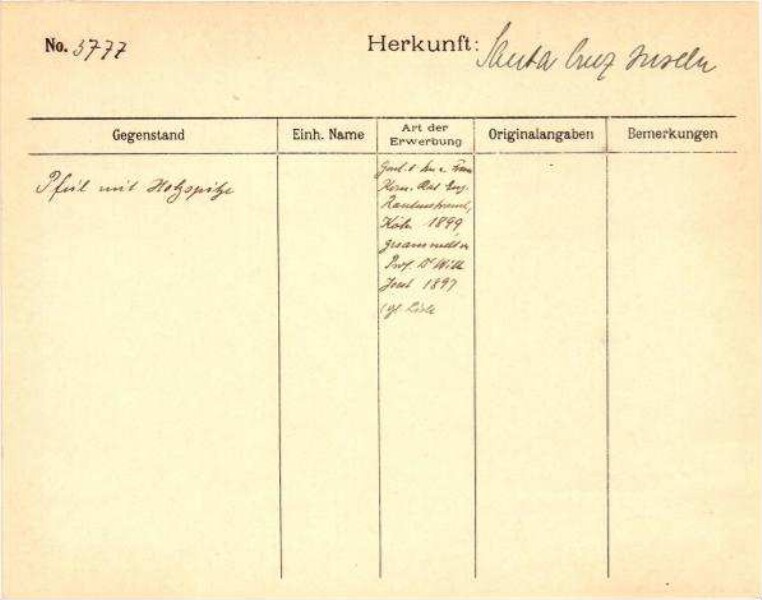 No. 3777 Herkunft: Santa Cruz Inseln
Gegenstand Einh. Name Art der Erwerbung Originalangaben Bemerkungen
Pfeil mit Holzspitze
Frau
Kom. Rat Eug.
Rautenstrauch,
Köln 1899
gesammelt v.
Prof. Dr Wilh
Joest 1897
Liste